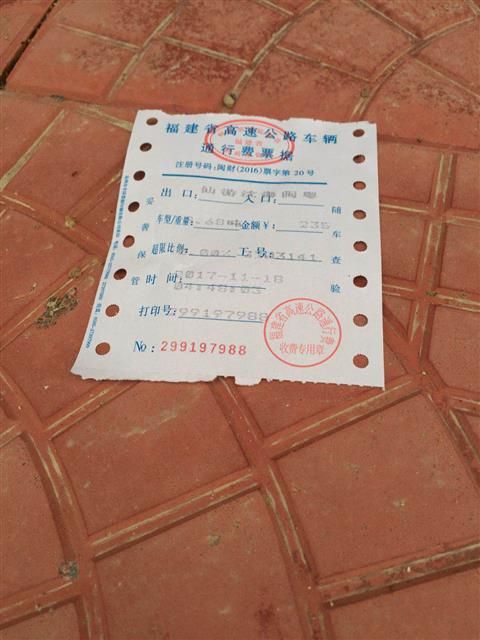 福建省高速公路车辆
通行费票据
注册号码:闽财(2016)票字第 20 号
出 口: 仙游 入口: 闽粤
车型/重量: 金额¥: 235
超限比例: 工号:
时间: 2017-11-18
04:48:03
打印号: 299197988
No: 299197988
妥善保管
随车查验
福建省高速公路通行费
收费专用章
福建省